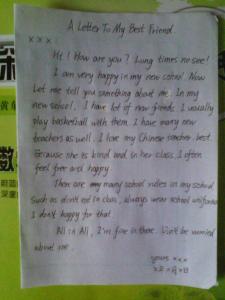 A Letter To My Best Friend
x x x :
Hi ! How are you ? Lung times no see!
I am very happy in my new school. Now
Let me tell you something about me. In my
new school, I have lot of new friends. I usually
play basketball with them. I have many new
teachers as well. I love my Chinese teacher best.
Because she is kind and in her class, I often
feel free and happy.
There are many school rules in my school
Such as don't eat in class, always wear school uniforms
I don't happy for that.
All in All, I'm fine in there. Don't be worried
about me.
yours xxx
x年x月x日
数